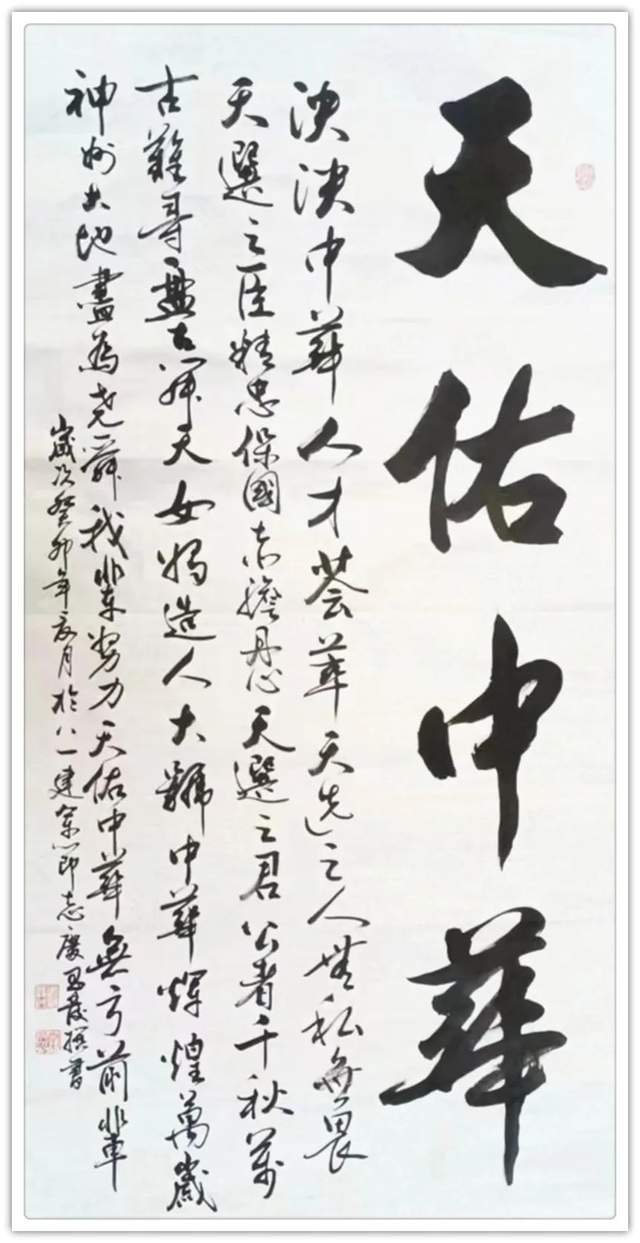 天佑中華
泱泱中華人才薈萃天选之人無私無畏
天選之臣精忠保國赤膽忠心天選之君公者千秋萬
古難尋盤古開天女媧造人大號中華輝煌萬歲
神州大地盡為尧舜我輩努力天佑中華無亏前輩
歲次癸卯年夏月於八一建軍節志慶 撰書